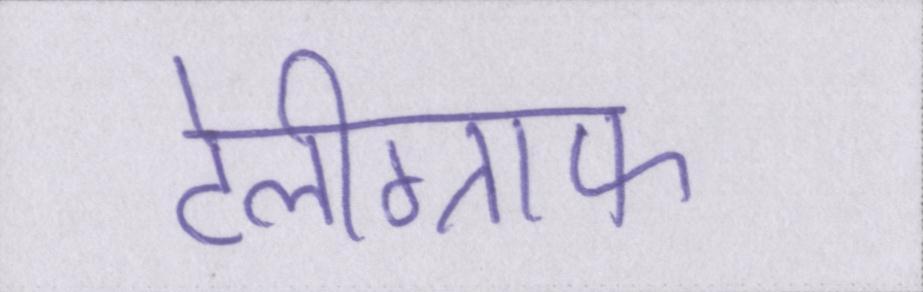 टेलीग्राफ